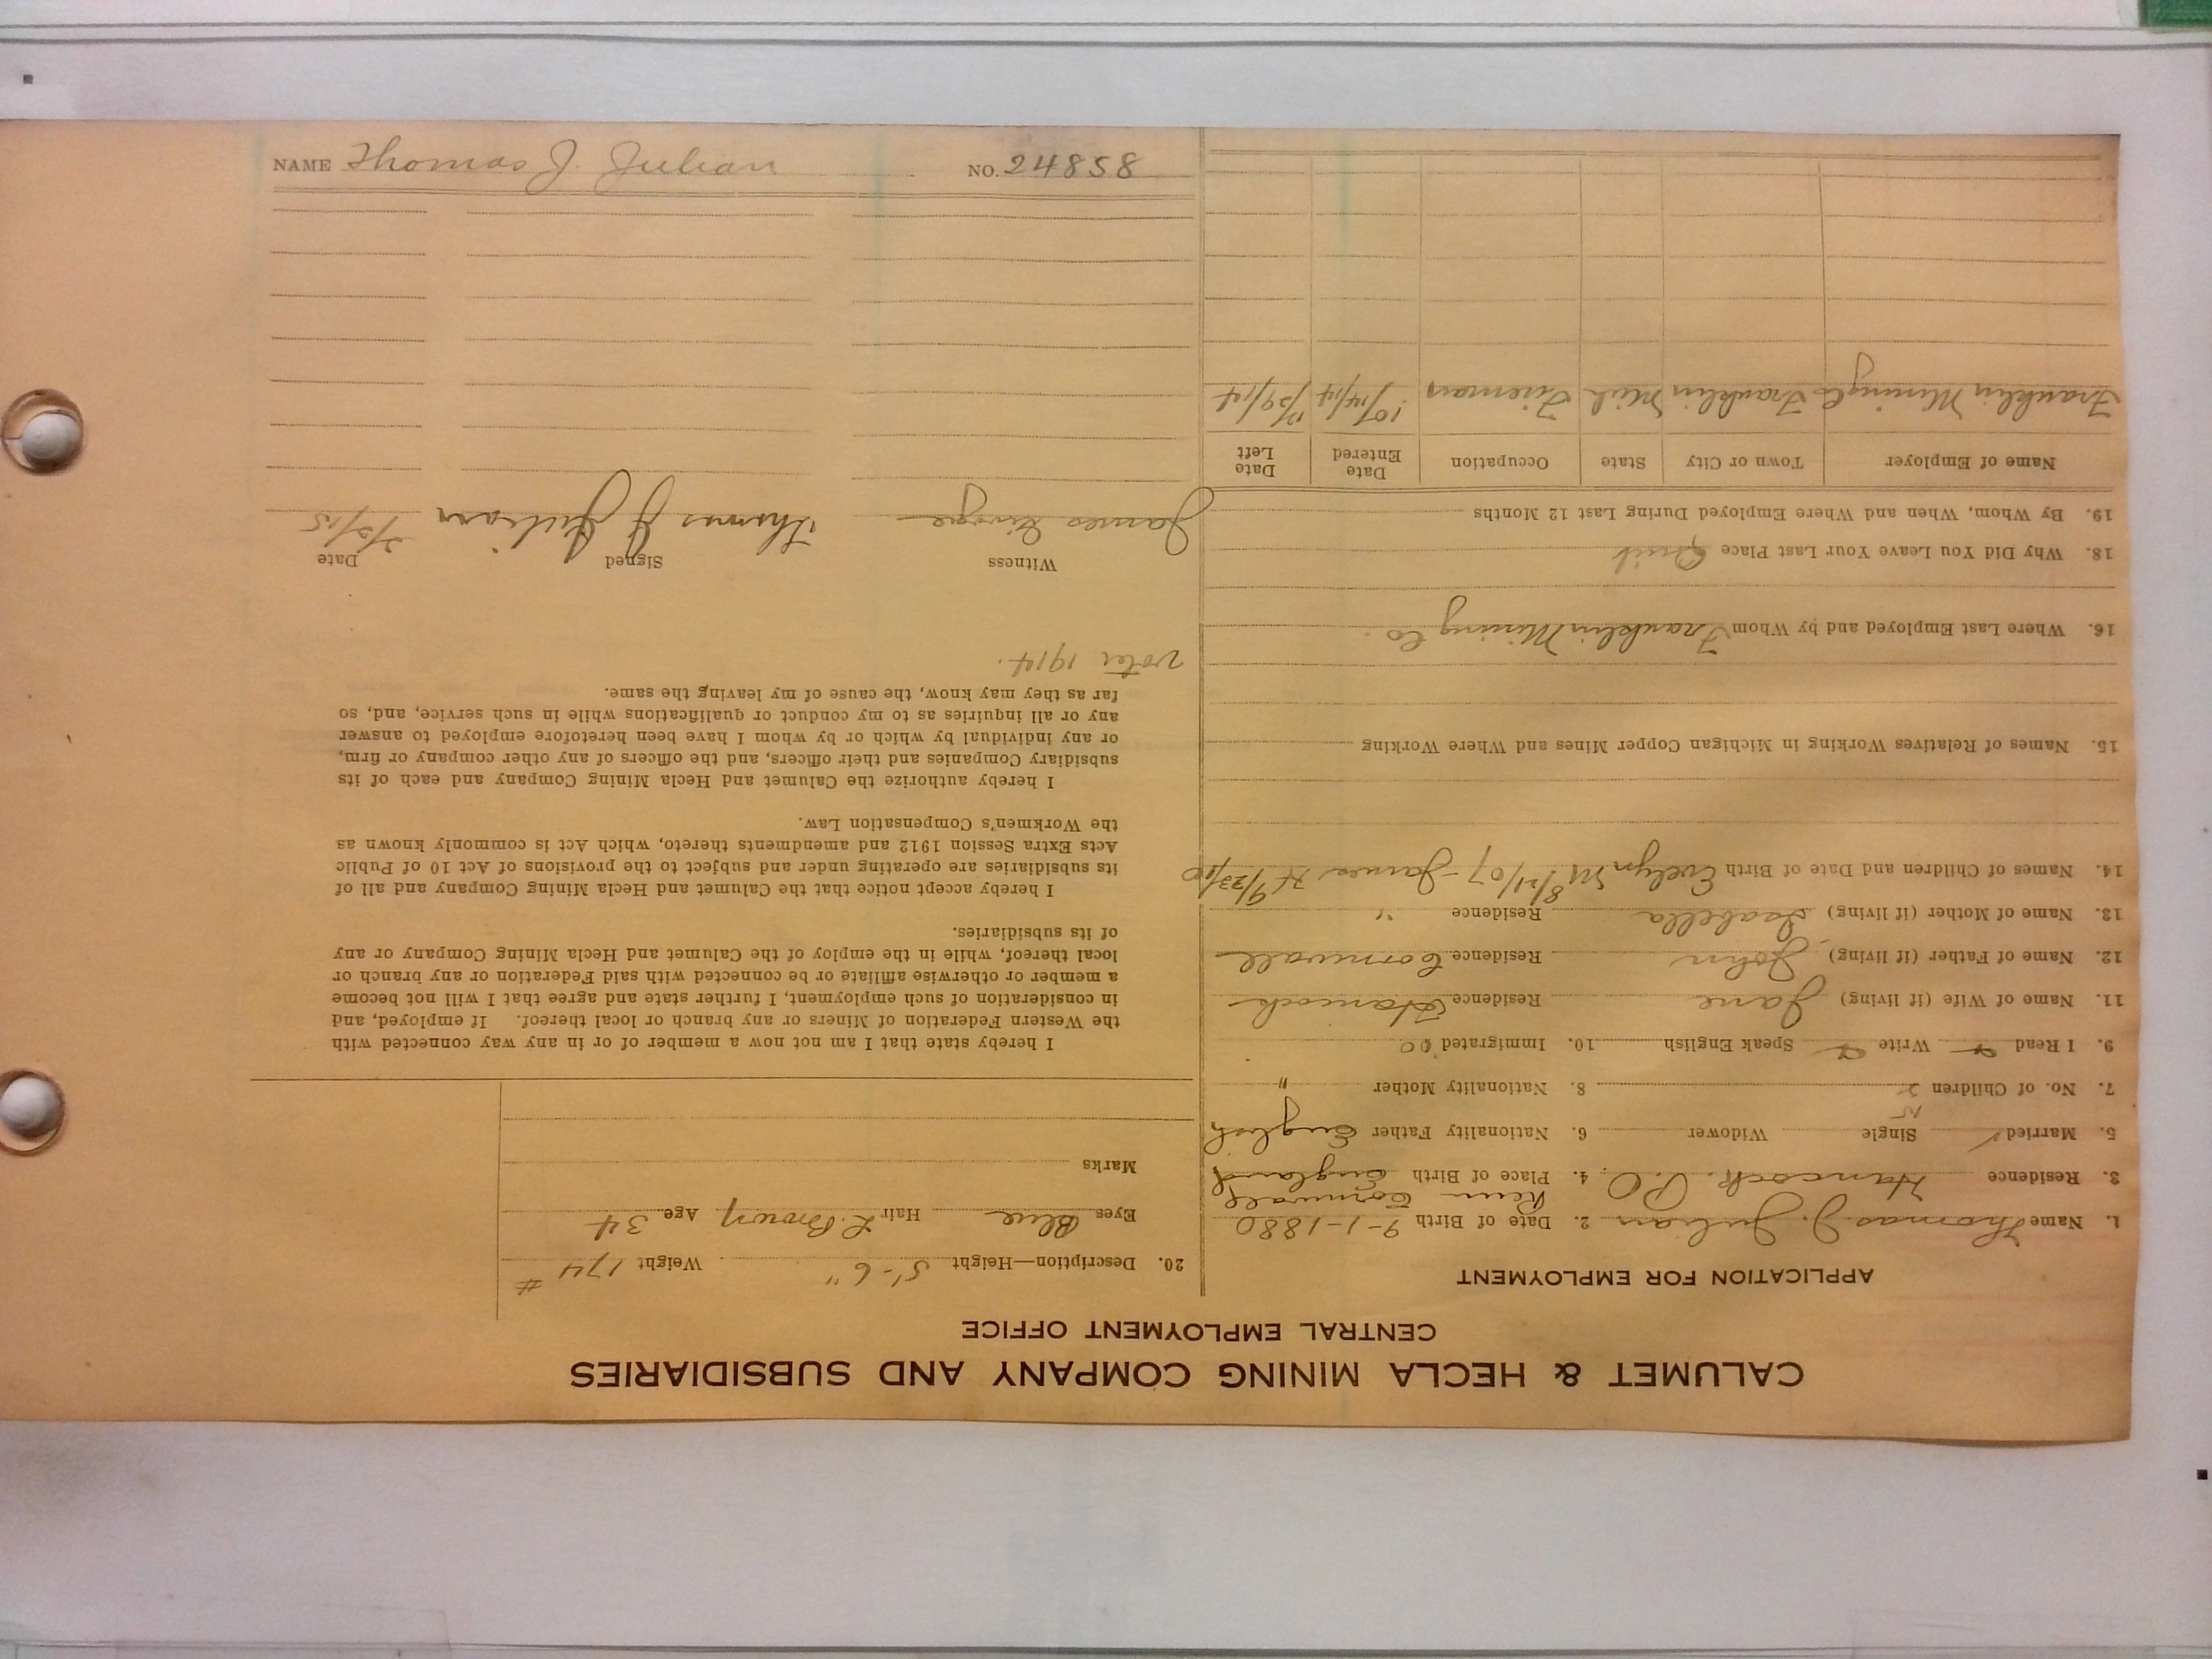 CALUMET & HECLA MINING COMPANY AND SUBSIDIARIES
CENTRAL EMPLOYMENT OFFICE
APPLICATION FOR EMPLOYMENT
1. Name Thomas J. Julian 2. Date of Birth 9-1-1880
Cornwall
3. Residence Hancock. P.O. 4. Place of Birth England
5. Married / Single Widower 6. Nationality Father English
7. No. of Children 2 8. Nationality Mother "
9. I Read Write Speak English 10. Immigrated 00
11. Name of Wife (if living) Jane Residence Hancock
12. Name of Father (if living) John Residence Cornwall
13. Name of Mother (if living) Isabella Residence "
14. Names of Children and Date of Birth Evelyn M 8/21/07 - James H 9/23/10
15. Names of Relatives Working in Michigan Copper Mines and Where Working
16. Where Last Employed and by Whom Franklin Mining Co.
18. Why Did You Leave Your Last Place Quit
19. By Whom, When and Where Employed During Last 12 Months
Name of Employer Town or City State Occupation Date Entered Date Left
Franklin Mining Co Franklin Mich Fireman 10/14/14 12/29/14
20. Description—Height 5'-6" Weight 174 #
Eyes Blue Hair L. Brown Age 34
Marks
I hereby state that I am not now a member of or in any way connected with
the Western Federation of Miners or any branch or local thereof. If employed, and
in consideration of such employment, I further state and agree that I will not become
a member or otherwise affiliate or be connected with said Federation or any branch or
local thereof, while in the employ of the Calumet and Hecla Mining Company or any
of its subsidiaries.
I hereby accept notice that the Calumet and Hecla Mining Company and all of
its subsidiaries are operating under and subject to the provisions of Act 10 of Public
Acts Extra Session 1912 and amendments thereto, which Act is commonly known as
the Workmen's Compensation Law.
I hereby authorize the Calumet and Hecla Mining Company and each of its
subsidiary Companies and their officers, and the officers of any other company or firm,
or any individual by which or by whom I have been heretofore employed to answer
any or all inquiries as to my conduct or qualifications while in such service, and, so
far as they may know, the cause of my leaving the same.
Voter 1914.
Witness Signed Date
James Thomas J Julian
NAME Thomas J. Julian NO. 24858